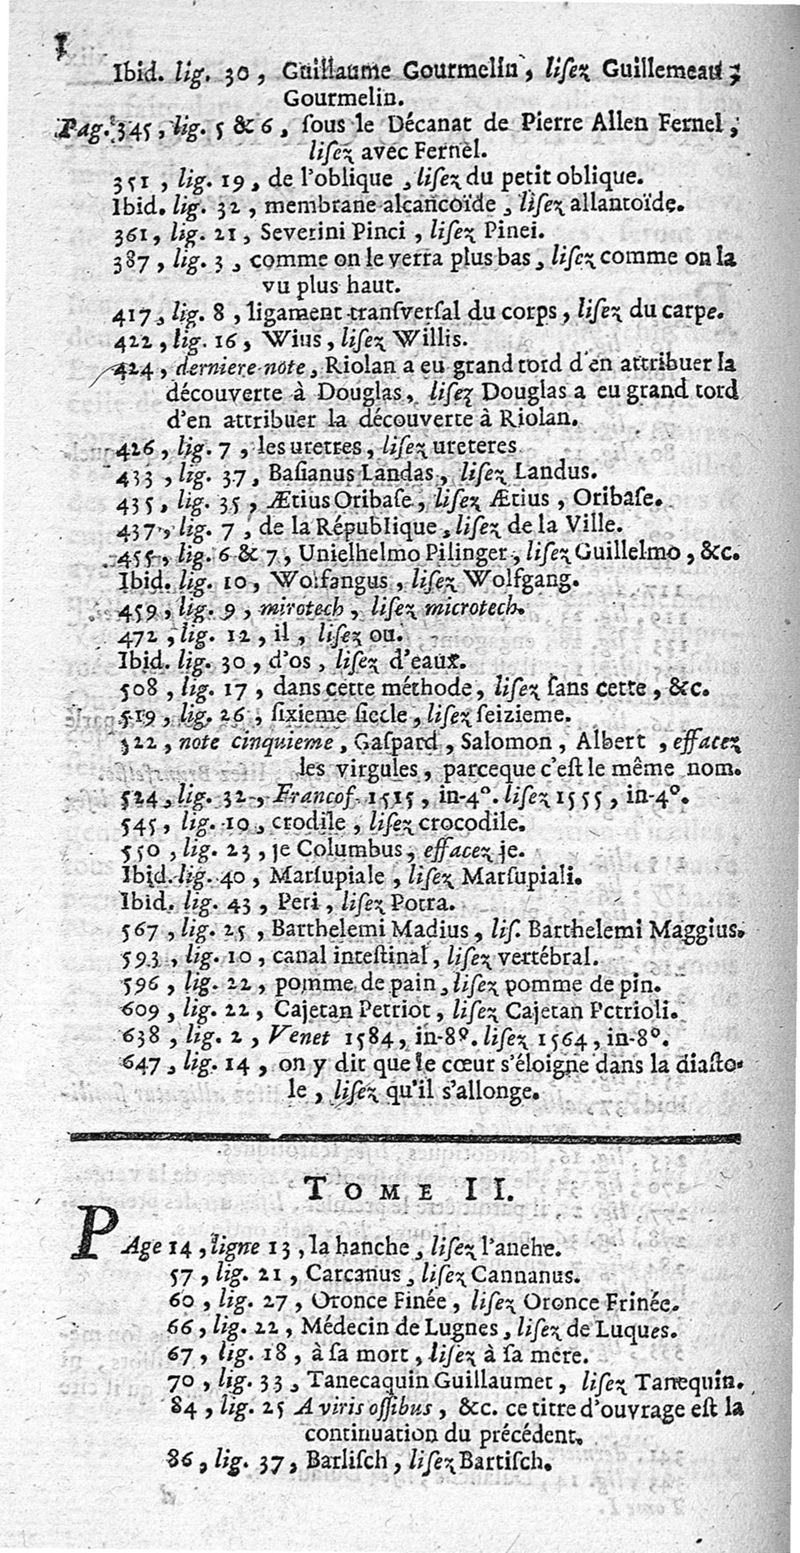 Ibid. lig. 30, Guillaume Gourmelin, liſez Guillemeau;
Gourmelin.
Pag. 345, lig. 5 & 6, ſous le Décanat de Pierre Allen Fernel,
liſez avec Fernel.
351, lig. 19, de l'oblique, liſez du petit oblique.
Ibid. lig. 32, membrane alcancoïde, liſez allantoïde.
361, lig. 21, Severini Pinci, liſez Pinei.
387, lig. 3, comme on le verra plus bas, liſez comme on la
vu plus haut.
417, lig. 8, ligament tranſverſal du corps, liſez du carpe.
422, lig. 16, Wius, liſez Willis.
424, derniere note, Riolan a eu grand tord d'en attribuer la
découverte à Douglas, liſez Douglas a eu grand tord
d'en attribuer la découverte à Riolan.
426, lig. 7, les uretres, liſez ureteres
433, lig. 37, Baſianus Landas, liſez Landus.
435, lig. 35, Ætius Oribaſe, liſez Ætius, Oribaſe.
437, lig. 7, de la République, liſez de la Ville.
455, lig. 6 & 7, Unielhelmo Pilinger, liſez Guillelmo, &c.
Ibid. lig. 10, Wolfangus, liſez Wolfgang.
459, lig. 9, mirotech, liſez microtech.
472, lig. 12, il, liſez ou.
Ibid. lig. 30, d'os, liſez d'eaux.
508, lig. 17, dans cette méthode, liſez ſans cette, &c.
519, lig. 26, ſixieme ſiecle, liſez ſeizieme.
322, note cinquieme, Gaſpard, Salomon, Albert, effacez
les virgules, parceque c'eſt le même nom.
524, lig. 32, Francof. 1515, in-4°. liſez 1555, in-4°.
545, lig. 19, crodile, liſez crocodile.
550, lig. 23, je Columbus, effacez je.
Ibid. lig. 40, Marſupiale, liſez Marſupiali.
Ibid. lig. 43, Peri, liſez Potra.
567, lig. 25, Barthelemi Madius, liſ. Barthelemi Maggius.
593, lig. 10, canal inteſtinal, liſez vertébral.
596, lig. 22, pomme de pain, liſez pomme de pin.
609, lig. 22, Cajetan Petriot, liſez Cajetan Petrioli.
638, lig. 2, Venet 1584, in-8°. liſez 1564, in-8°.
647, lig. 14, on y dit que le cœur s'éloigne dans la diaſto-
le, liſez qu'il s'allonge.
TOME II.
PAge 14, ligne 13, la hanche, liſez l'anehe.
57, lig. 21, Carcanus, liſez Cannanus.
60, lig. 27, Oronce Finée, liſez Oronce Frinée.
66, lig. 22, Médecin de Lugnes, liſez de Luques.
67, lig. 18, à ſa mort, liſez à ſa mere.
70, lig. 33, Tanecaquin Guillaumet, liſez Tanequin.
84, lig. 25 A viris oſſibus, &c. ce titre d'ouvrage eſt la
continuation du précédent.
86, lig. 37, Barliſch, liſez Bartiſch.